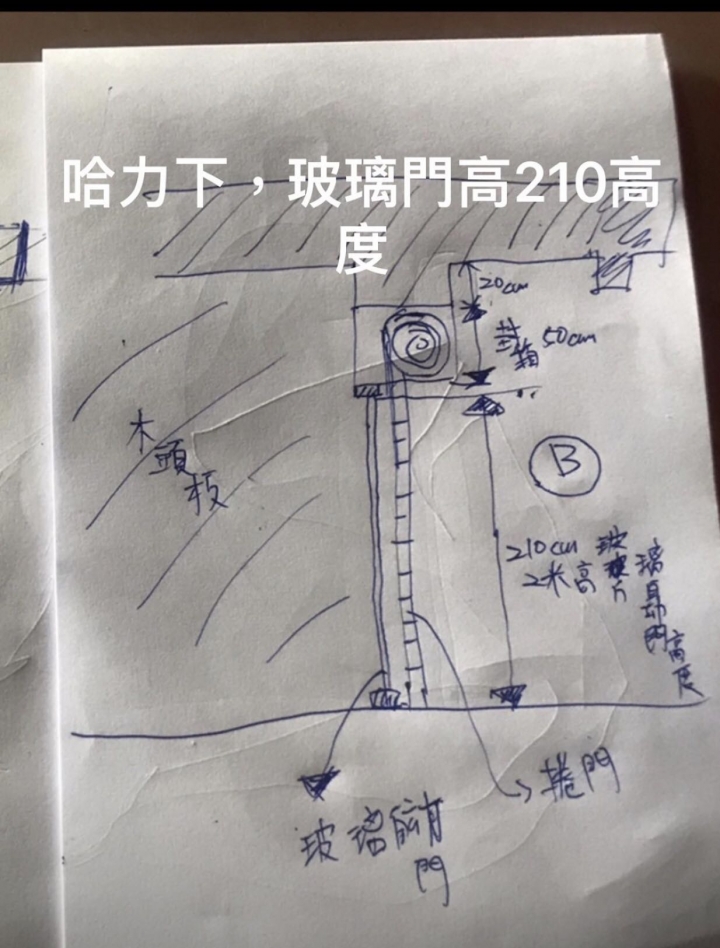 哈力下，玻璃門高210高
度
20cm
封箱 50cm
木頭板
B
210cm
2米高
玻璃自動門高度
捲門
玻璃
門